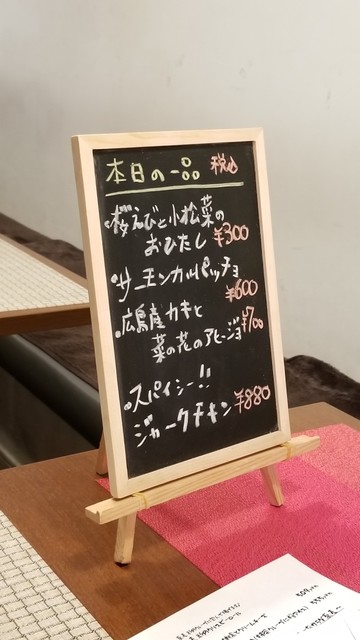 本日の一品 税込
・桜えびと小松菜の
おひたし ¥300
・サーモンカルパッチョ
¥600
・広島産カキと
菜の花のアヒージョ ¥700
・スパイシー!!
ジャークチキン ¥880